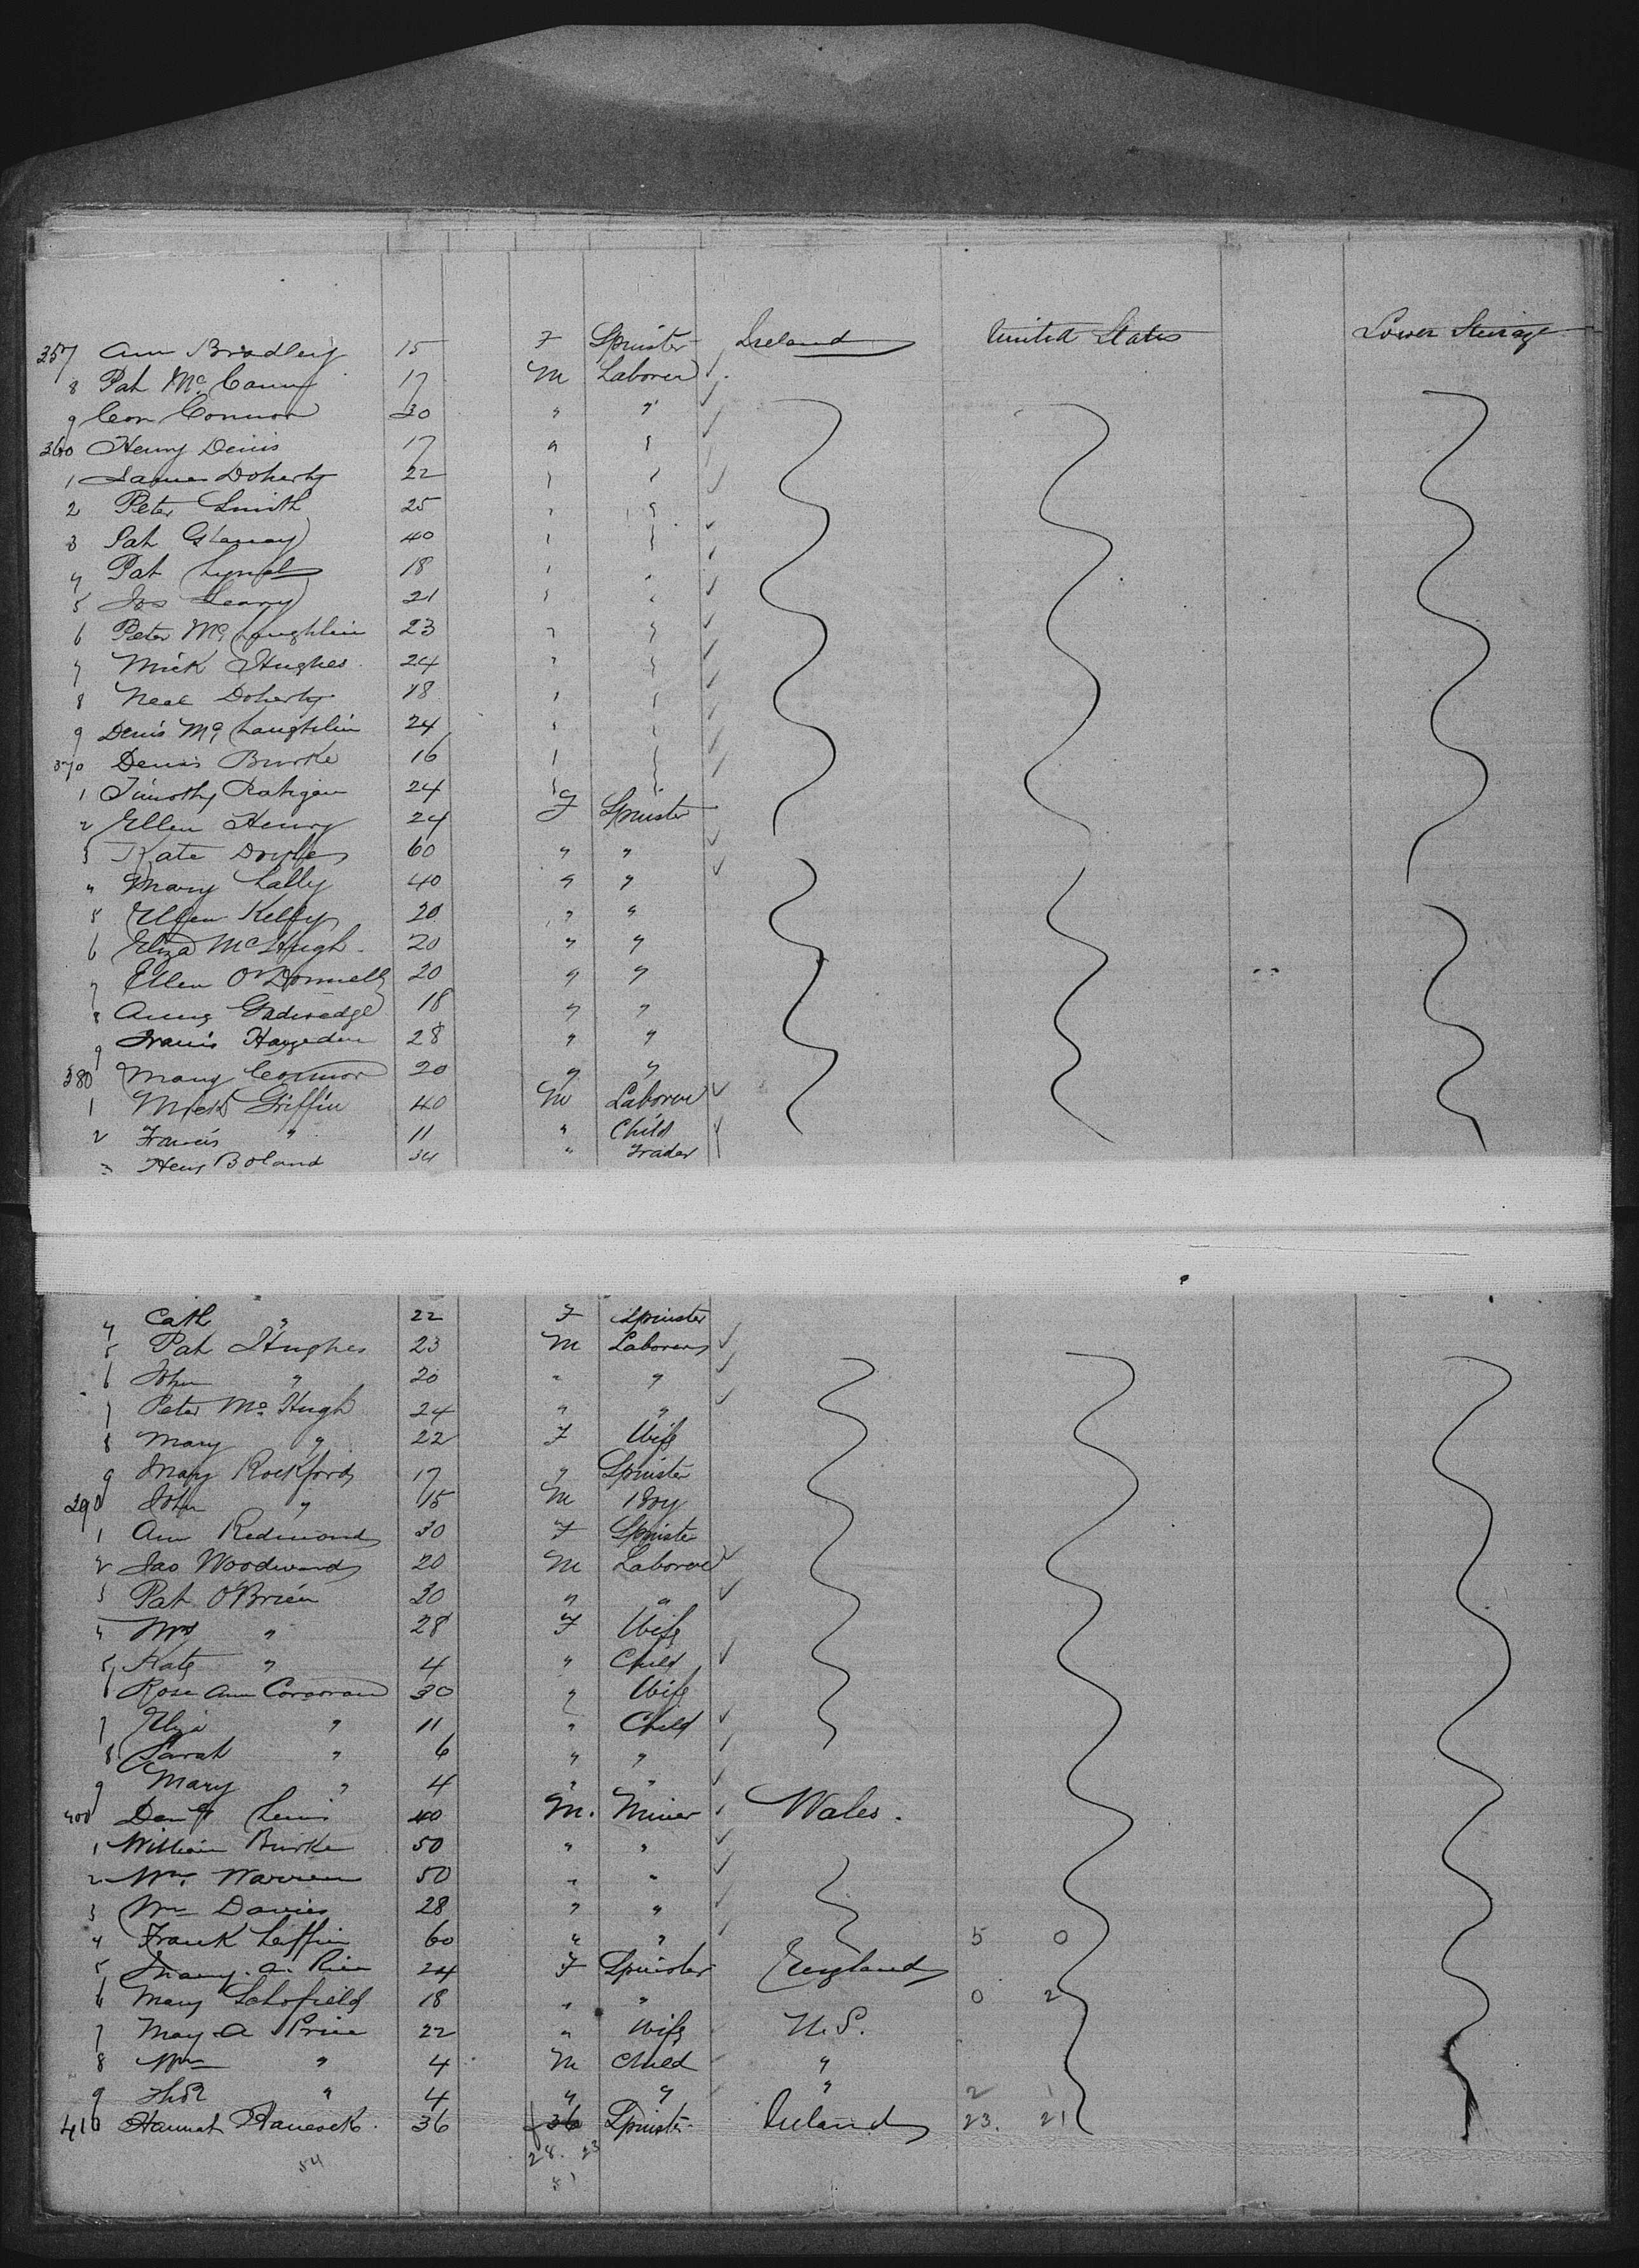 357 Ann Bradley 15 F Spinster Ireland United States Lower Steerage
8 Pat McCann 17 M Laborer
9 Con Connor 30 " "
360 Henry Denis 17 " "
1 James Doherty 22 " "
2 Peter Smith 25 " "
3 Pat 40 " "
4 Pat Lynch 18 " "
5 Jos Leary 21 " "
6 Peter McLaughlin 23 " "
7 Mick Hughes 24 " "
8 Neal Doherty 18 " "
9 Denis McLaughlin 24 " "
370 Denis Burke 16 " "
1 Timothy Ratigan 24 " "
2 Ellen Henry 24 F Spinster
3 Kate Doyle 60 " "
4 Mary Lally 40 " "
5 Ellen Kelly 20 " "
6 Eliza McHugh 20 " "
7 Ellen O'Donnell 20 " "
8 18 " "
9 28 " "
380 Mary Connor 20 " "
1 Griffin 40 M Laborer
2 Francis " 11 " Child
3 Heny Boland 34 " Trader
4 Cath " 22 F Spinster
5 Pat Hughes 23 M Laborer
6 John " 20 " "
7 Peter McHugh 24 " "
8 Mary " 22 F Wife
9 Mary Rockford 17 " Spinster
390 John " 15 M Boy
1 Ann Redmond 30 F Spinster
2 Jas Woodward 20 M Laborer
3 Pat O'Brien 30 " "
4 Mrs " 28 F Wife
5 Kate " 4 " Child
6 Rose Ann Corcoran 30 " Wife
7 Eliza " 11 " Child
8 Sarah " 6 " "
9 Mary " 4 " "
400 Lewis 40 M. Miner Wales.
1 William Burke 50 " "
2 Wm. Warren 50 " "
3 Wm Davies 28 " "
4 Frank 60 " " 5 0
5 Mary. A. 24 F Spinster England
6 Mary Schofield 18 " " 0 2
7 May A Price 22 " Wife U.S.
8 Wm " 4 M Child "
9 Thos " 4 " " " 2 1
410 Hannah Hancock 36 36 Spinster Ireland 23. 21
54 28. 23